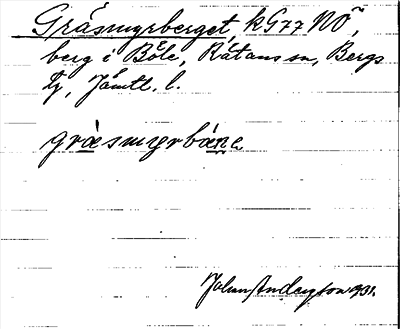 Gräsmyrberget, kG77 NÖ,
berg i Böle, Rätans sn, Bergs
tg, Jämtl. l.
gräsmyrbäne
Johan Andersson 1931.